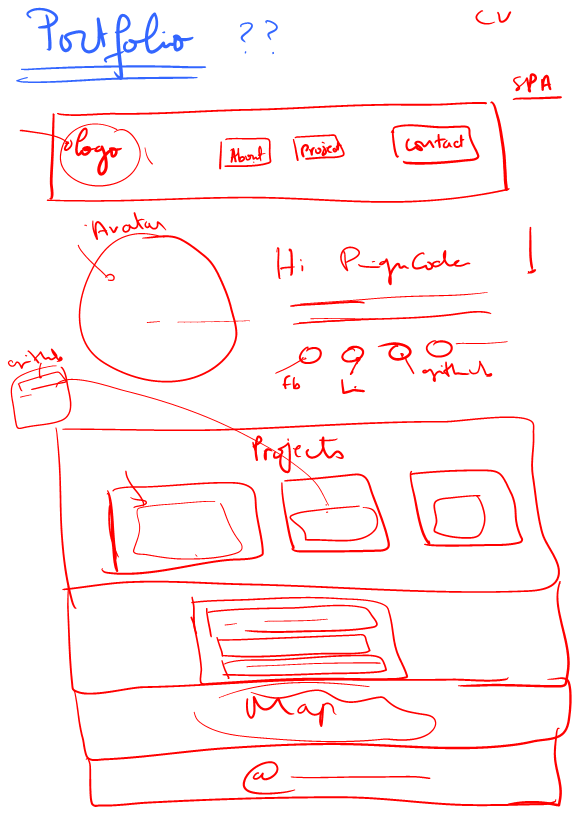 Portfolio ??
CV
SPA
logo
About
Project
Contact
Avatar
Hi
github
fb
Li
github
Projects
Map
@